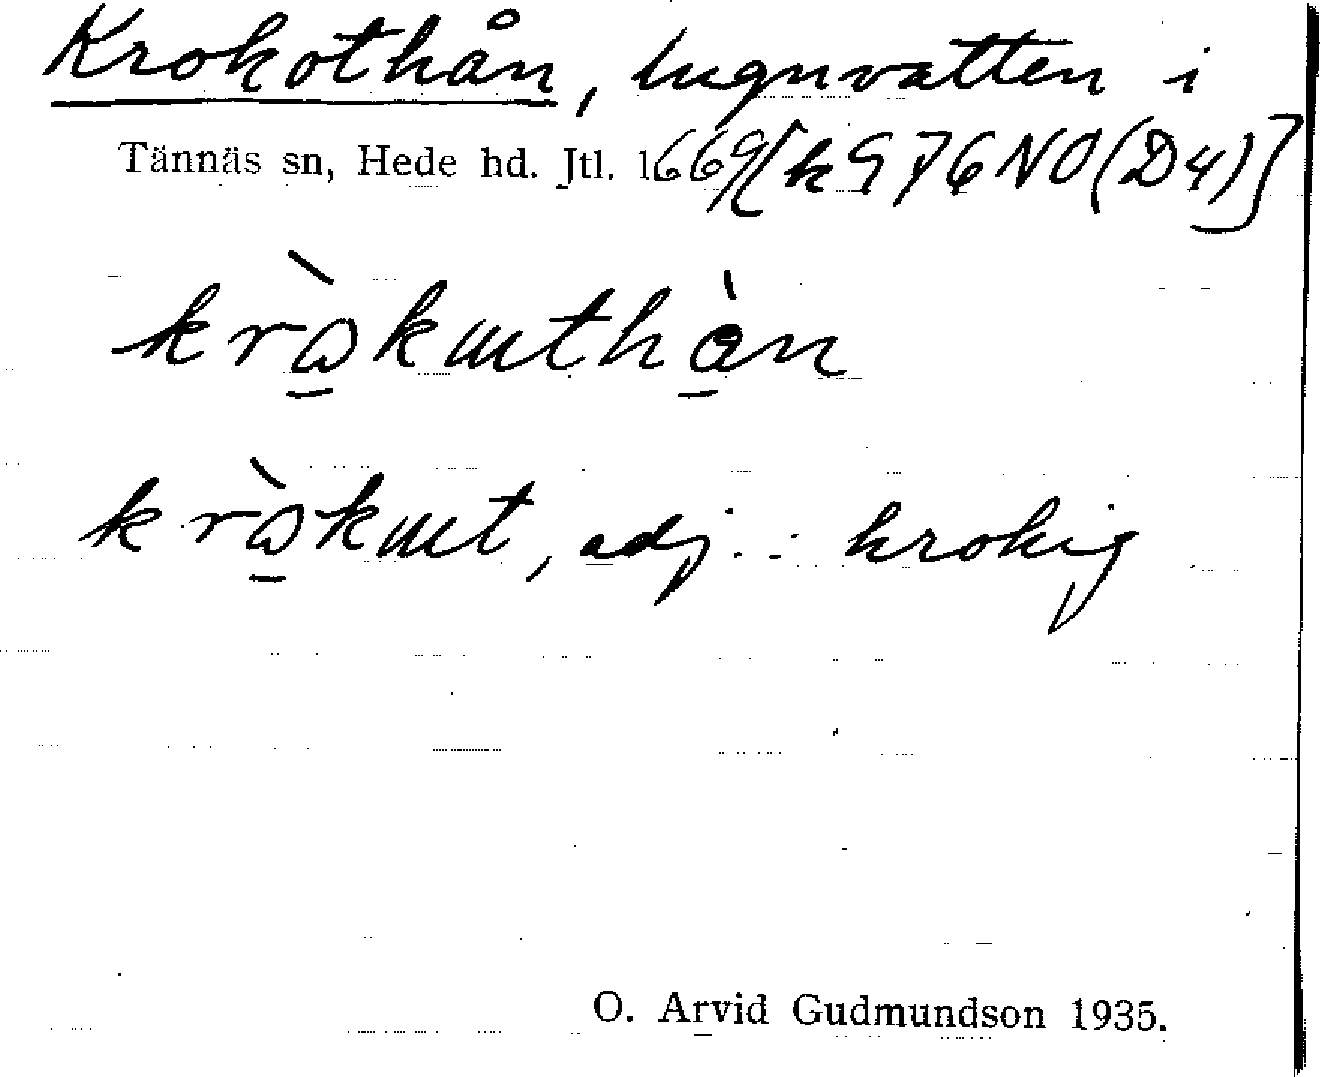 Krokothån, lugnvatten i
Tännäs sn, Hede hd. Jtl. 1669 [k 976 NO (D4)]
krὼ̠kɯthàn
krὼ̠kɯt, adj. : krokig
O. Arvid Gudmundson 1935.